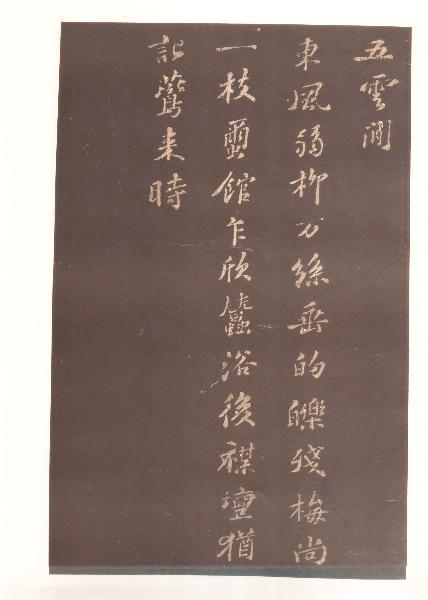 五雲間
東風弱柳万絲垂的皪殘梅尚
一枝蠒館乍欣蠶浴後禖壇猶
記鷰来時